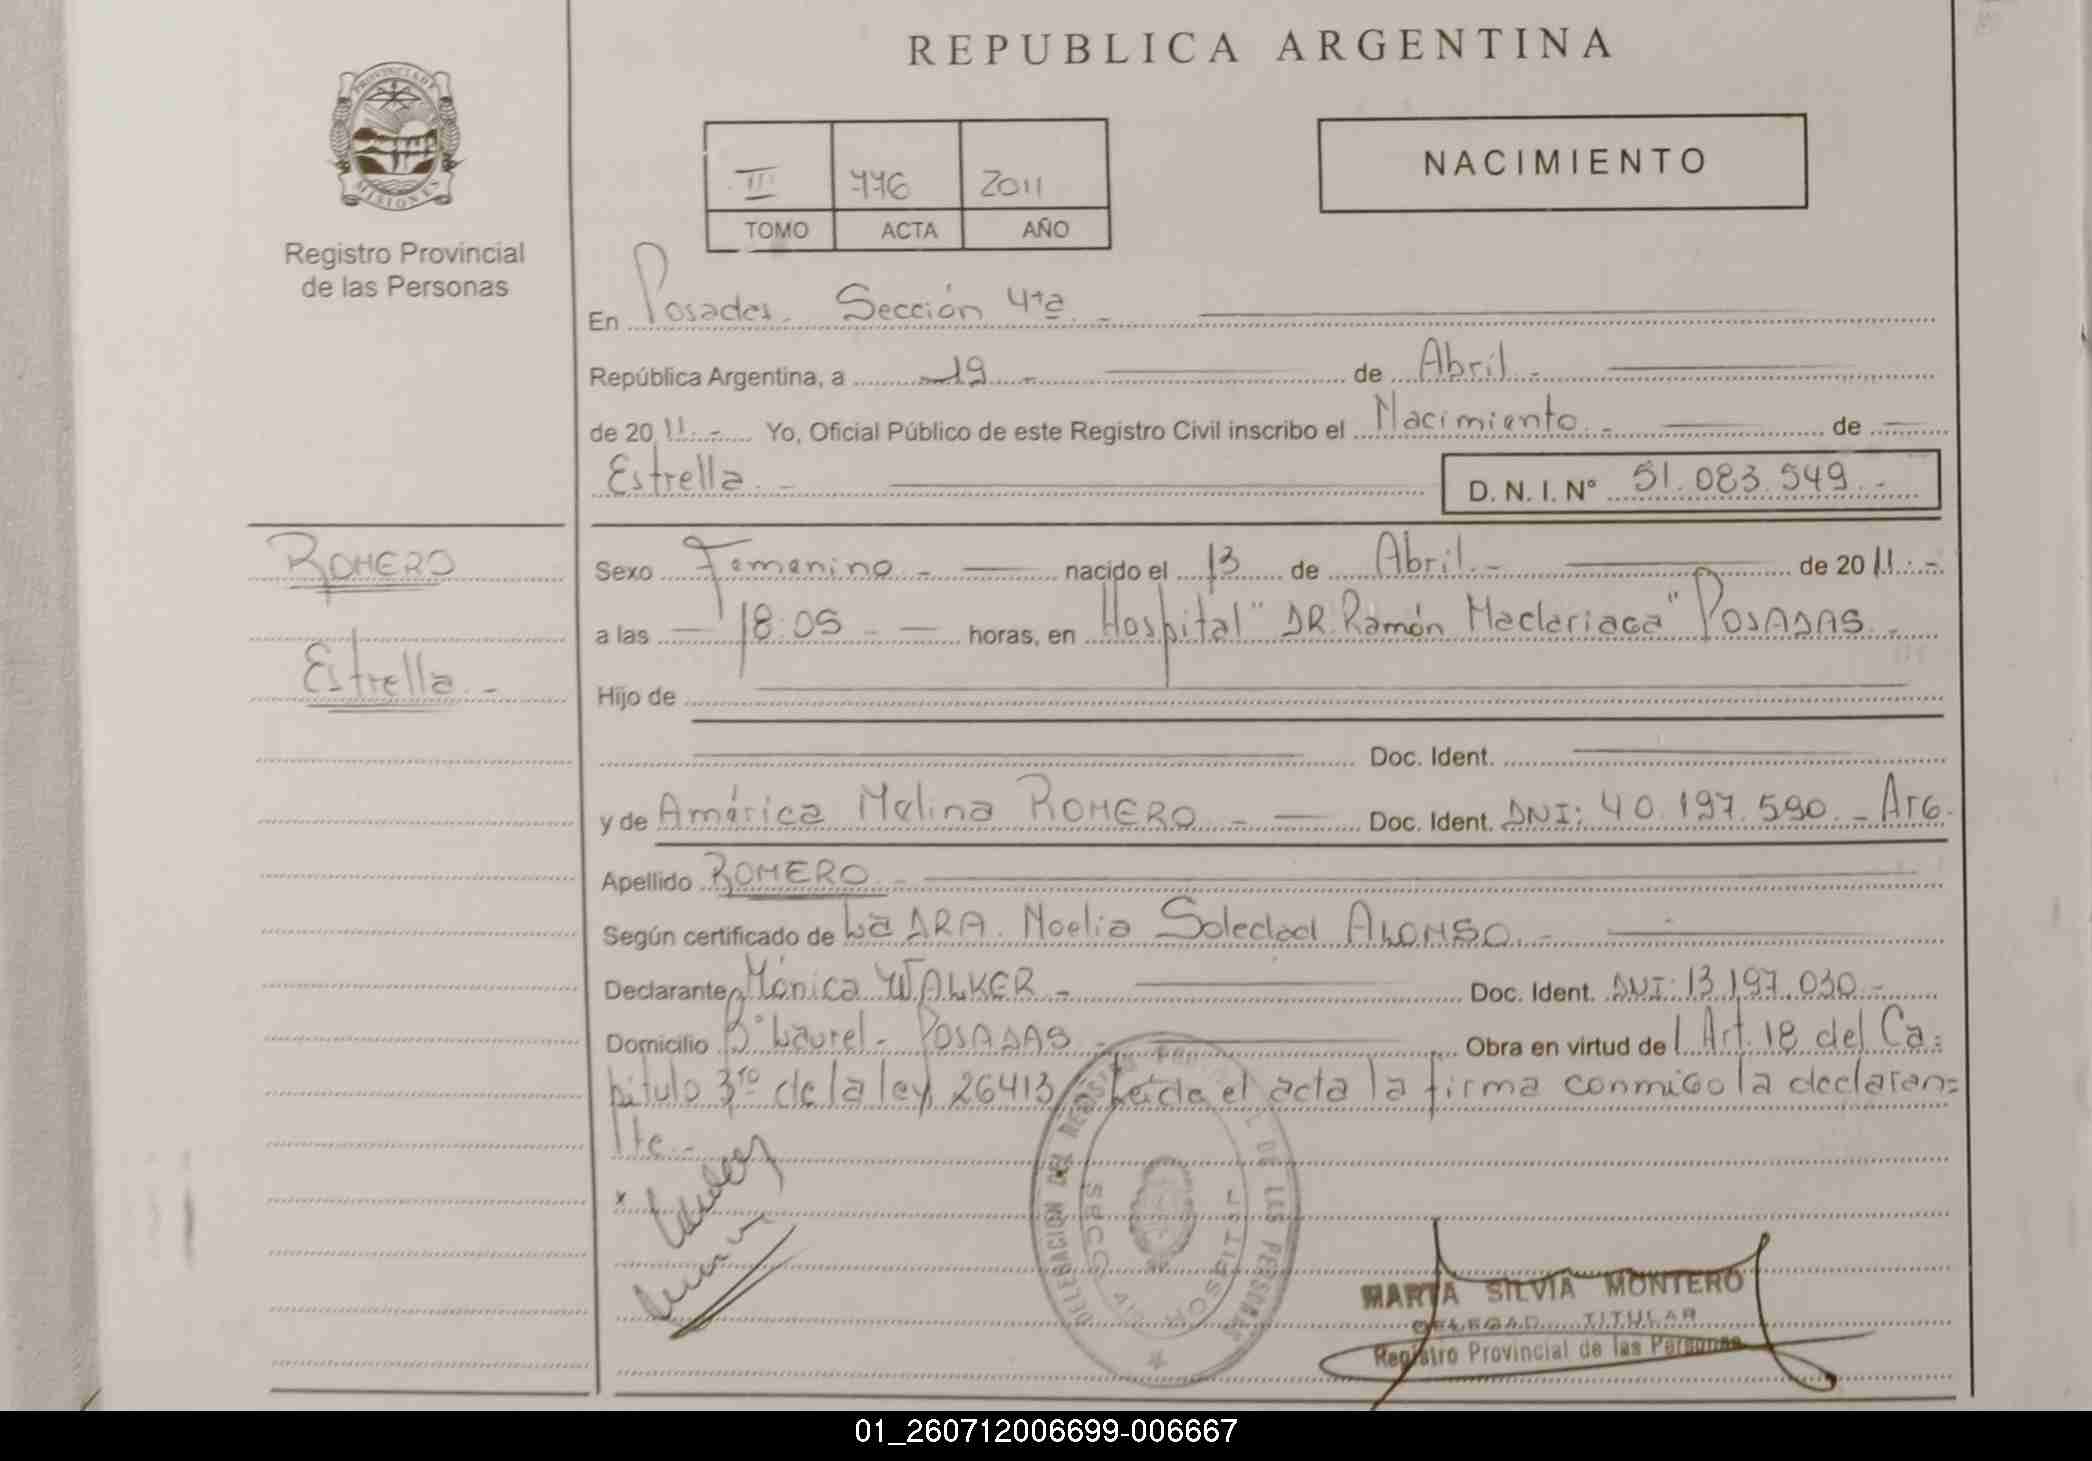 REPUBLICA ARGENTINA
PROVINCIA DE
MISIONES
Registro Provincial
de las Personas
III 776 2011
TOMO ACTA AÑO
NACIMIENTO
En Posadas. Sección 4ta. -
República Argentina, a 19 - de Abril. -
de 20 11. - Yo, Oficial Público de este Registro Civil inscribo el Nacimiento. - de
Estrella. -
D. N. I. N° 51.083.549. -
ROMERO
Estrella. -
Sexo Femenino - nacido el 13 de Abril. - de 20 11. -
a las 18:05 - horas, en Hospital "DR. Ramón Madariaga" POSADAS. -
Hijo de
Doc. Ident.
y de América Melina ROMERO - Doc. Ident. DNI: 40.197.590. - Arg.
Apellido ROMERO. -
Según certificado de La DRA. Noelia Soledad ALONSO. -
Declarante Mónica WALKER - Doc. Ident. DNI: 13.197.030. -
Domicilio B° Laurel - POSADAS - Obra en virtud del Art. 18 del Ca=
pitulo 3ro de la ley 26413. Leida el acta la firma conmigo la declaran=
te. -
x
DELEGACION DEL REGISTRO PROVINCIAL DE LAS PERSONAS
SECC. HOSPITAL
MARTA SILVIA MONTERO
DELEGAD TITULAR
Registro Provincial de las Personas
01_260712006699-006667